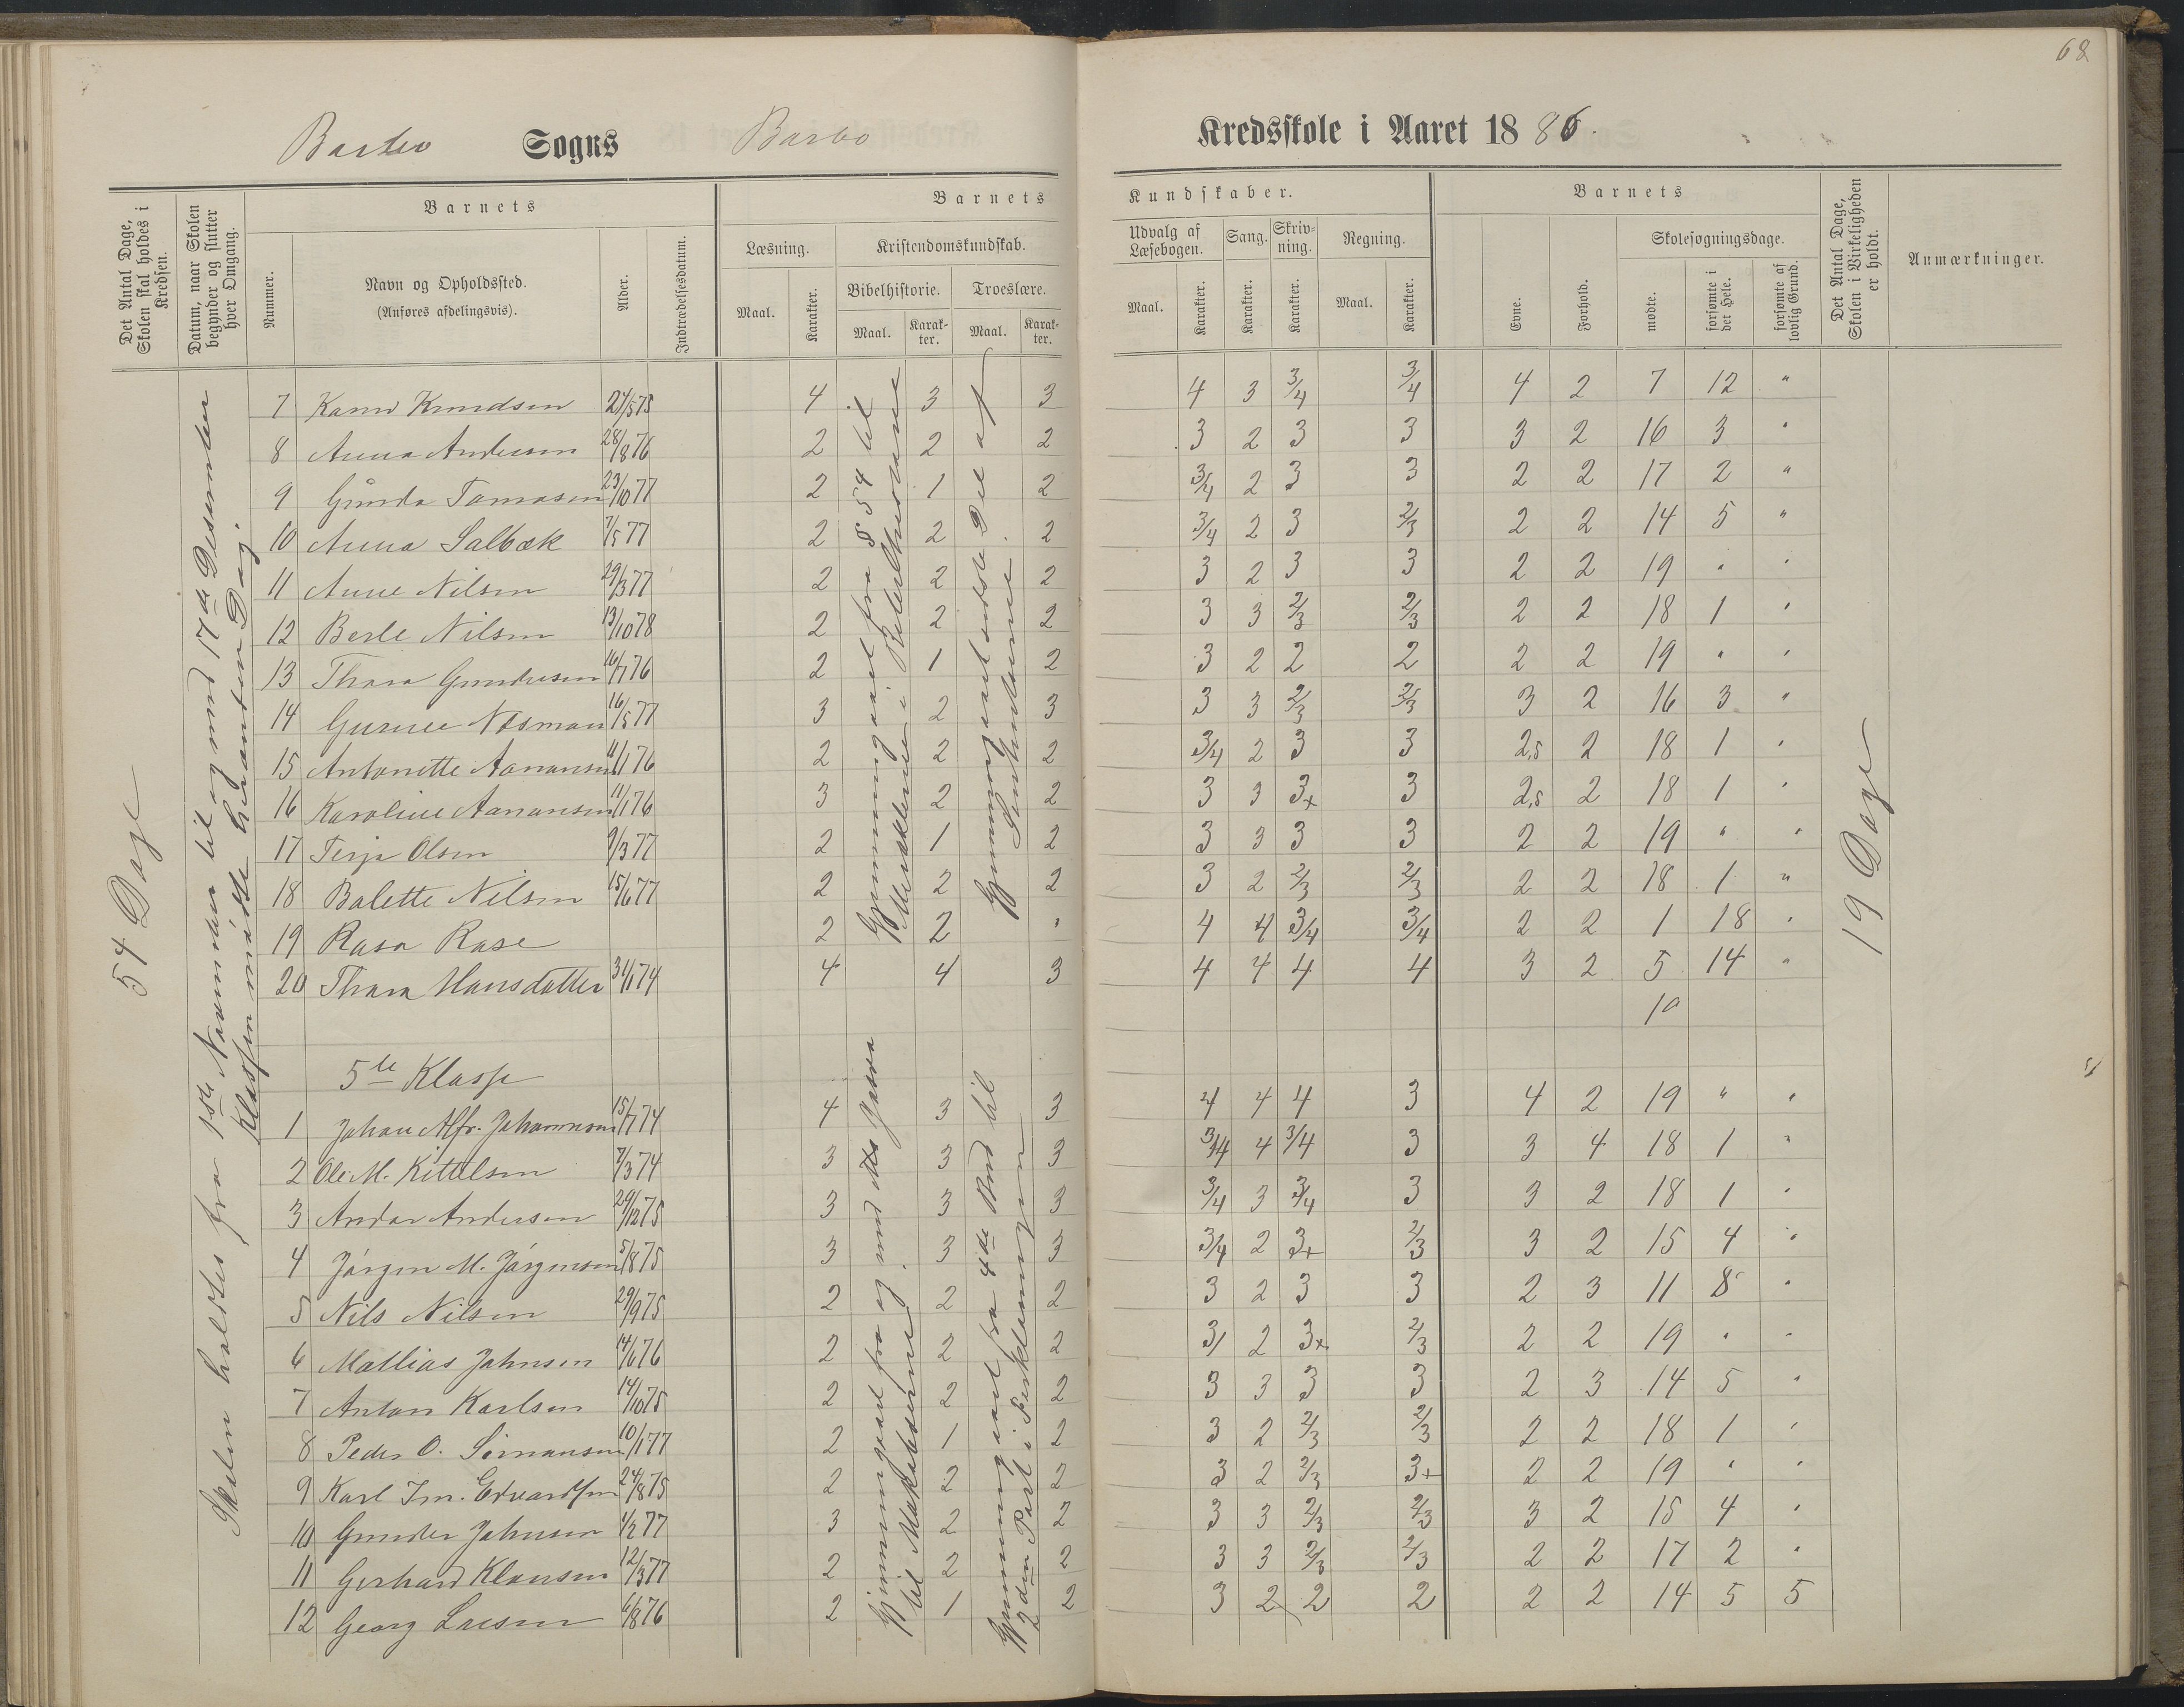 68
Barbo Sogns Barbo Kredsskole i Aaret 1886.
Det Antal Dage, Skolen skal holdes i Kredsen.
Datum, naar Skolen begynder og slutter hver Omgang.
Barnets
Nummer.
Navn og Opholdssted.
(Anføres afdelingsvis).
Alder.
Indtrædelsesdatum.
Barnets Kundskaber.
Læsning.
Maal. Karakter.
Kristendomskundskab.
Bibelhistorie. Troeslære.
Maal. Karakter. Maal. Karakter.
Udvalg af Læsebogen. Sang. Skrivning. Regning.
Maal. Karakter. Karakter. Karakter. Maal. Karakter.
Barnets
Evne. Forhold.
Skolesøgningsdage.
mødte. forsømte i det Hele. forsømte af lovlig Grund.
Det Antal Dage, Skolen i Virkeligheden er holdt.
Anmærkninger.
54 Dage
Skolen holdtes fra 1ste November til og med 17de Desember
Klassen mødte hveranden Dag.
Gjennemgaaet fra § 54 til
Mirakler i
Gjennemgaaet sidste Del af
19 Dage
7 Knudsen 24/5 75 4 3 3 4 3 3/4 3/4 4 2 7 12 "
8 Anna Andersen 28/8 76 2 2 2 3 2 3 3 3 2 16 3 "
9 Gunda Tomasen 23/10 77 2 1 2 3/4 2 3 3 2 2 17 2 "
10 Anna Salbæk 7/5 77 2 2 2 3/4 2 3 2/3 2 2 14 5 "
11 Anne Nilsen 29/3 77 2 2 2 3 2 3 3 2 2 19 " "
12 Berte Nilsen 13/10 78 2 2 2 3 3 2/3 2/3 2 2 18 1 "
13 Thora Gundersen 16/1 76 2 1 2 3 2 2 2 2 2 19 " "
14 16/5 77 3 2 3 3 3 2/3 2/3 3 2 16 3 "
15 Antonette Aanansen 11/1 76 2 2 2 3/4 2 3 3 2,5 2 18 1 "
16 Karoline Aanansen 11/1 76 3 2 2 3 3 3+ 3 2,5 2 18 1 "
17 Terje Olsen 9/3 77 2 1 2 3 3 3 3 2 2 19 " "
18 Balette Nilsen 15/6 77 2 2 2 3 2 2/3 2/3 2 2 18 1 "
19 Rasa Rase 2 2 " 4 4 3/4 3/4 2 2 1 18 "
20 Thora Hansdatter 31/1 74 4 4 3 4 4 4 4 3 2 5 14 "
10
5te Klasse
Gjennemgaaet fra og med
til Makabæerne
Gjennemgaaet fra 4de Bud til
2den Part i Forklaringen
1 Johan Alfr. Johannesen 15/7 74 4 3 3 4 4 4 3 4 2 19 " "
2 Ole M. Kittelsen 7/3 74 3 3 3 3/4 4 3/4 3 3 4 18 1 "
3 Andor Andersen 29/12 75 3 3 3 3/4 3 3/4 3 3 2 18 1 "
4 Jørgen M. Jørgensen 5/8 75 3 3 3 3/4 2 3+ 2/3 3 2 15 4 "
5 Nils Nilsen 29/9 75 2 2 2 3 2 3 3 2 3 11 8 "
6 Mathias Johnsen 14/6 76 2 2 2 3/ 2 3+ 2/3 2 2 19 " "
7 Anton Karlsen 14/10 75 2 2 2 3 3 3 3 2 3 14 5 "
8 Peder O. 10/1 77 2 1 2 3 2 2/3 2/3 2 2 18 1 "
9 Karl Im. Edvardsen 24/8 75 2 2 2 3 2 2/3 3+ 2 2 19 " "
10 Gunder Johnsen 1/2 77 3 2 2 3 3 2/3 2/3 3 2 15 4 "
11 Gerhard Klausen 12/3 77 2 2 2 3 3 2/3 2/3 2 2 17 2 "
12 Georg Larsen 6/8 76 2 1 2 3 2 2 2 2 2 14 5 5